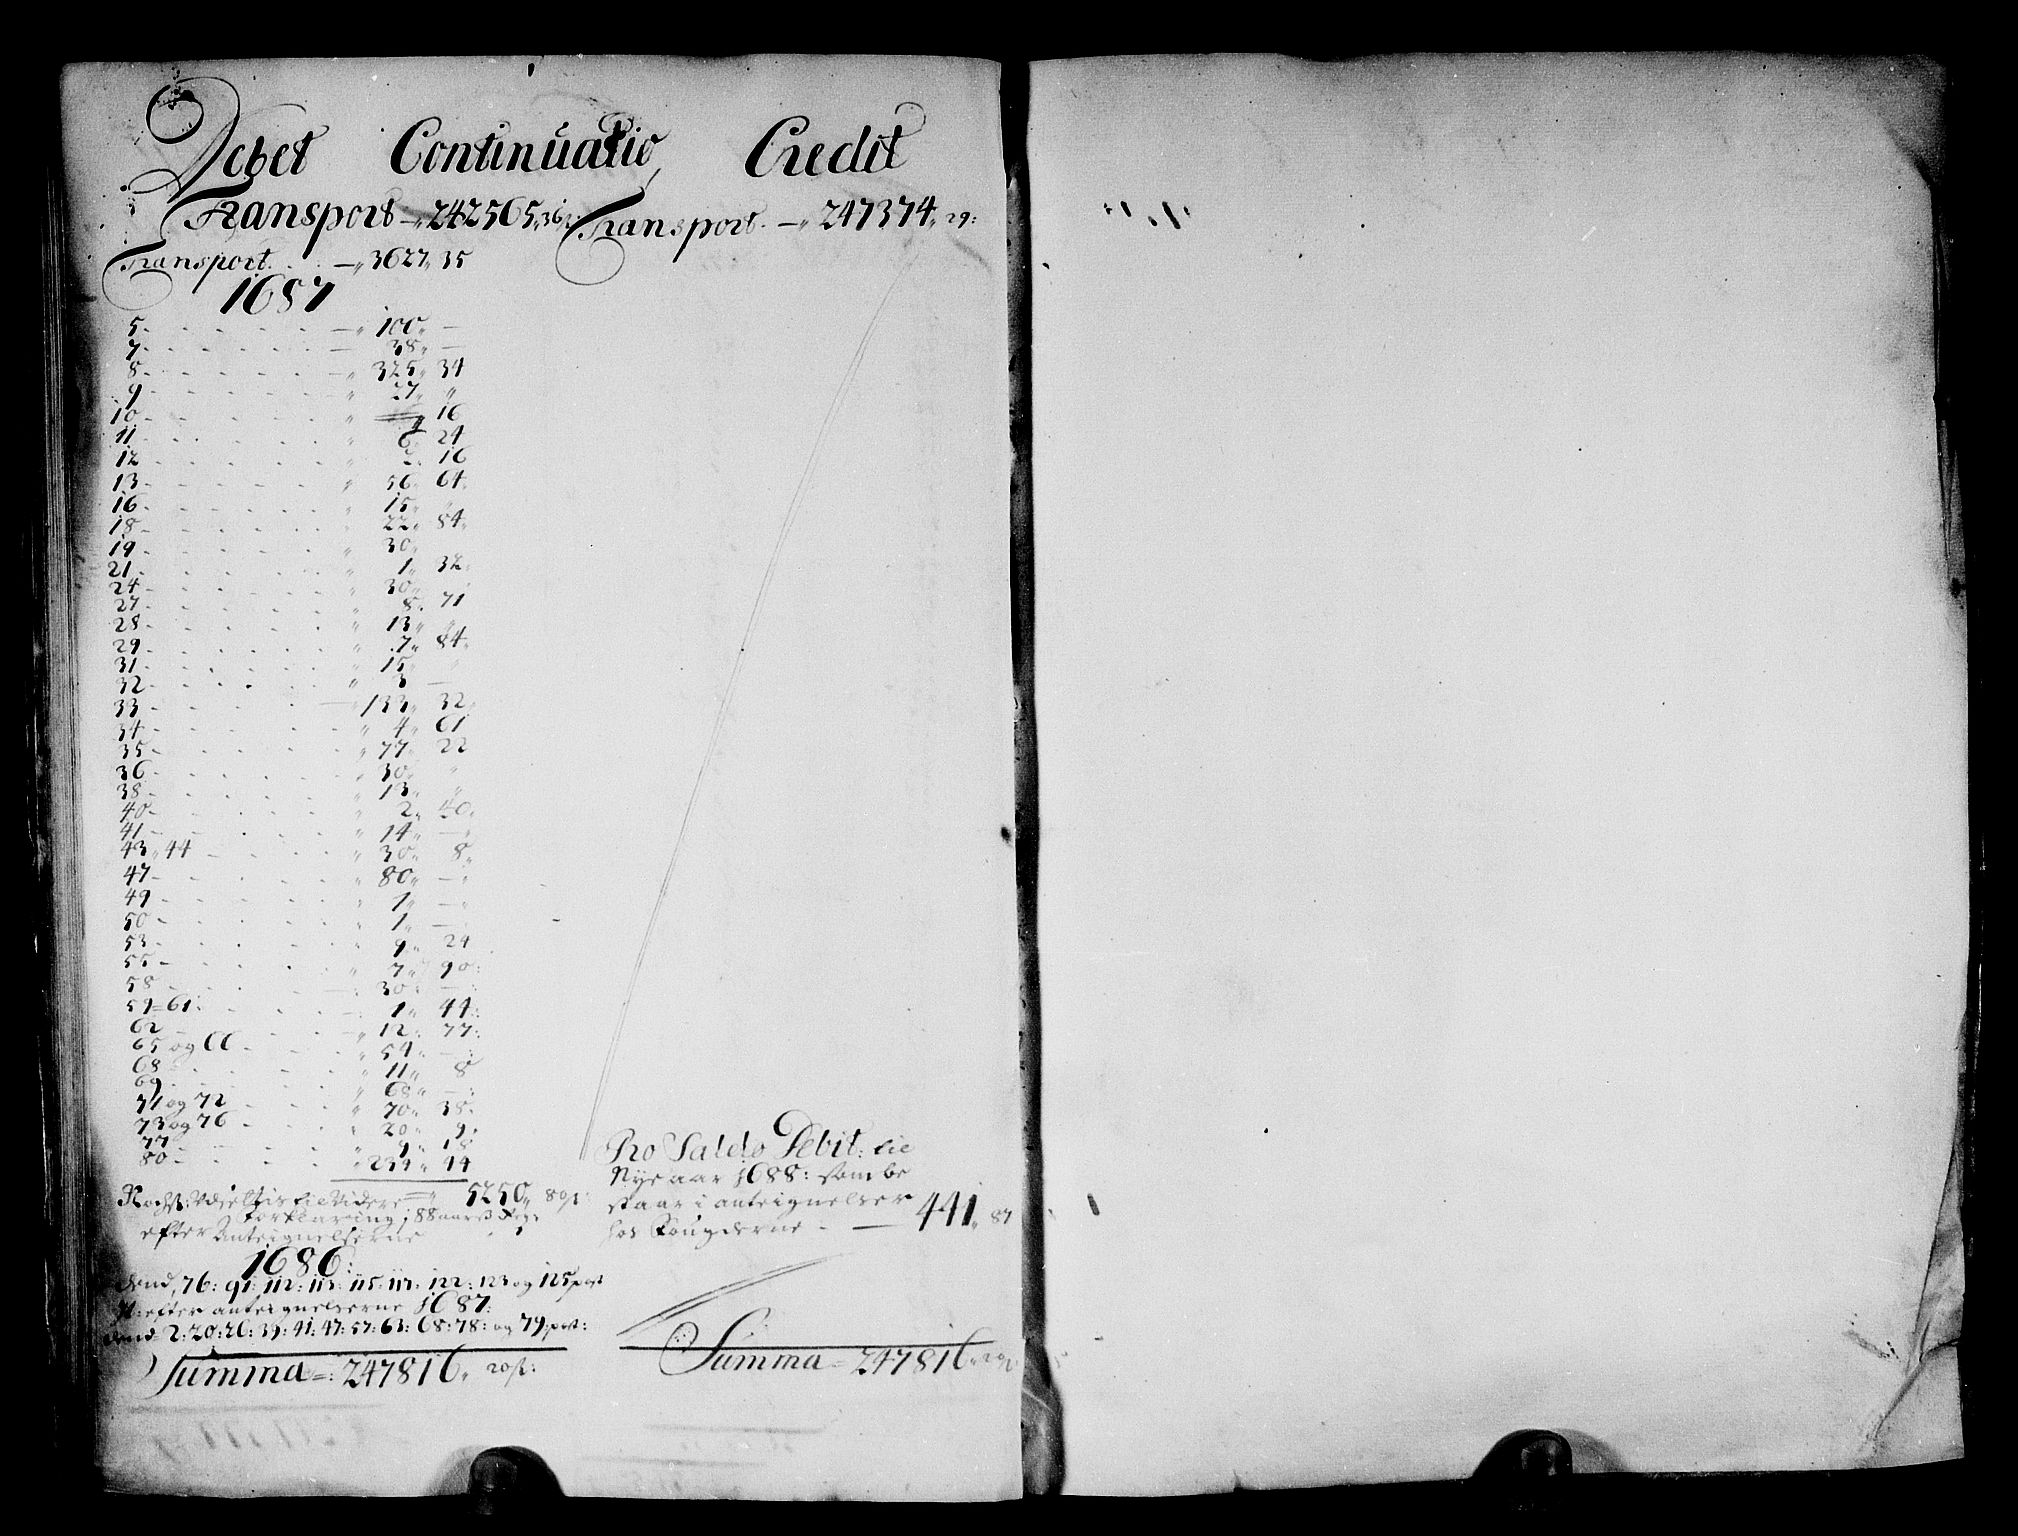 Debet Continuatio, Credit
Transport — 242565 „ 36 ß:
Transport — 3627 „ 35
1687
5 - - - 100 „ —
7 - - - 38 „ —
8 - - - 325 „ 34
9 - - - 27 „ „
10 - - - „ 16
11 - - - 6 „ 24
12 - - - 2 „ 16
13 - - - 56 „ 64
16 - - - 15 „ „
18 - - - 22 „ 84
19 - - - 30 „
21 - - - 1 „ 32
24 - - - 30 „ „
27 - - - 8 „ 71
28 - - - 13 „ „
29 - - - 7 „ 84
31 - - - 15 „ „
32 - - - 3 —
33 - - - 133 „ 32
34 - - - 4 „ 61
35 - - - 77 „ 22
36 - - - 30 „ „
38 - - - 13 „ „
40 - - - 2 „ 40
41 - - - 14 „ —
43 „ 44 - - - 30 „ 8
47 - - - 80 „ —
49 - - - 1 „ —
50 - - - 1 „ —
53 - - - 9 „ 24
55 - - - 7 „ 90
58 - - - 30 „ —
59=61 - - - 1 „ 44
62 - - - 12 „ 77
65 og 66 - - - 54 „ —
68 - - - 11 „ 8
69 - - - 68 „ —
71 og 72 - - - 70 „ 38
73 og 76 - - - 20 „ 9
77 - - - 9 „ 18
80 - - - 234 „ 44
5250 „ 80 ß:
Forklaring
efter Anteignelserne
1686:
76: 91: 112: 113: 115: 122: 123 og 125 post
efter anteignelserne 1687:
2: 20: 26: 39: 41: 47: 57: 63: 68: 78: og 79 post:
Summa =: 247816 „ 20 ß:
Transport. — 247374 „ 29:
Pro Saldo Debit: til
Nye aar 1688: som be
staar i anteignelser
hos Fougderne - — 441 „ 87
Summa = 247816 „ 20 ß: